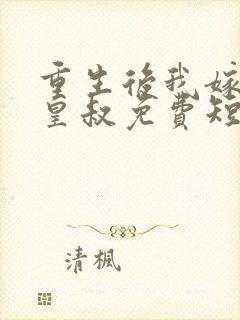 重生后我嫁
皇叔免費短
清楓